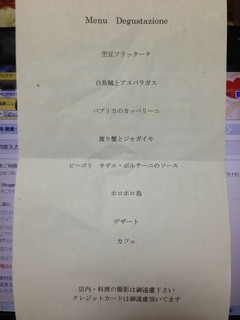 Menu Degustazione
空豆フリッタータ
白烏賊とアスパラガス
パプリカのカッペリーニ
渡り蟹とジャガイモ
ビーゴリ サザエ・ポルチーニのソース
ホロホロ鳥
デザート
カフェ
店内・料理の撮影は御遠慮下さい
クレジットカードは御遠慮頂いてます